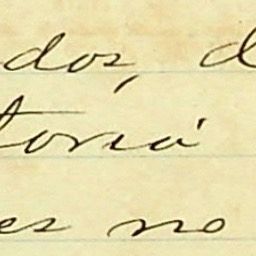 dos, d
toria
es no